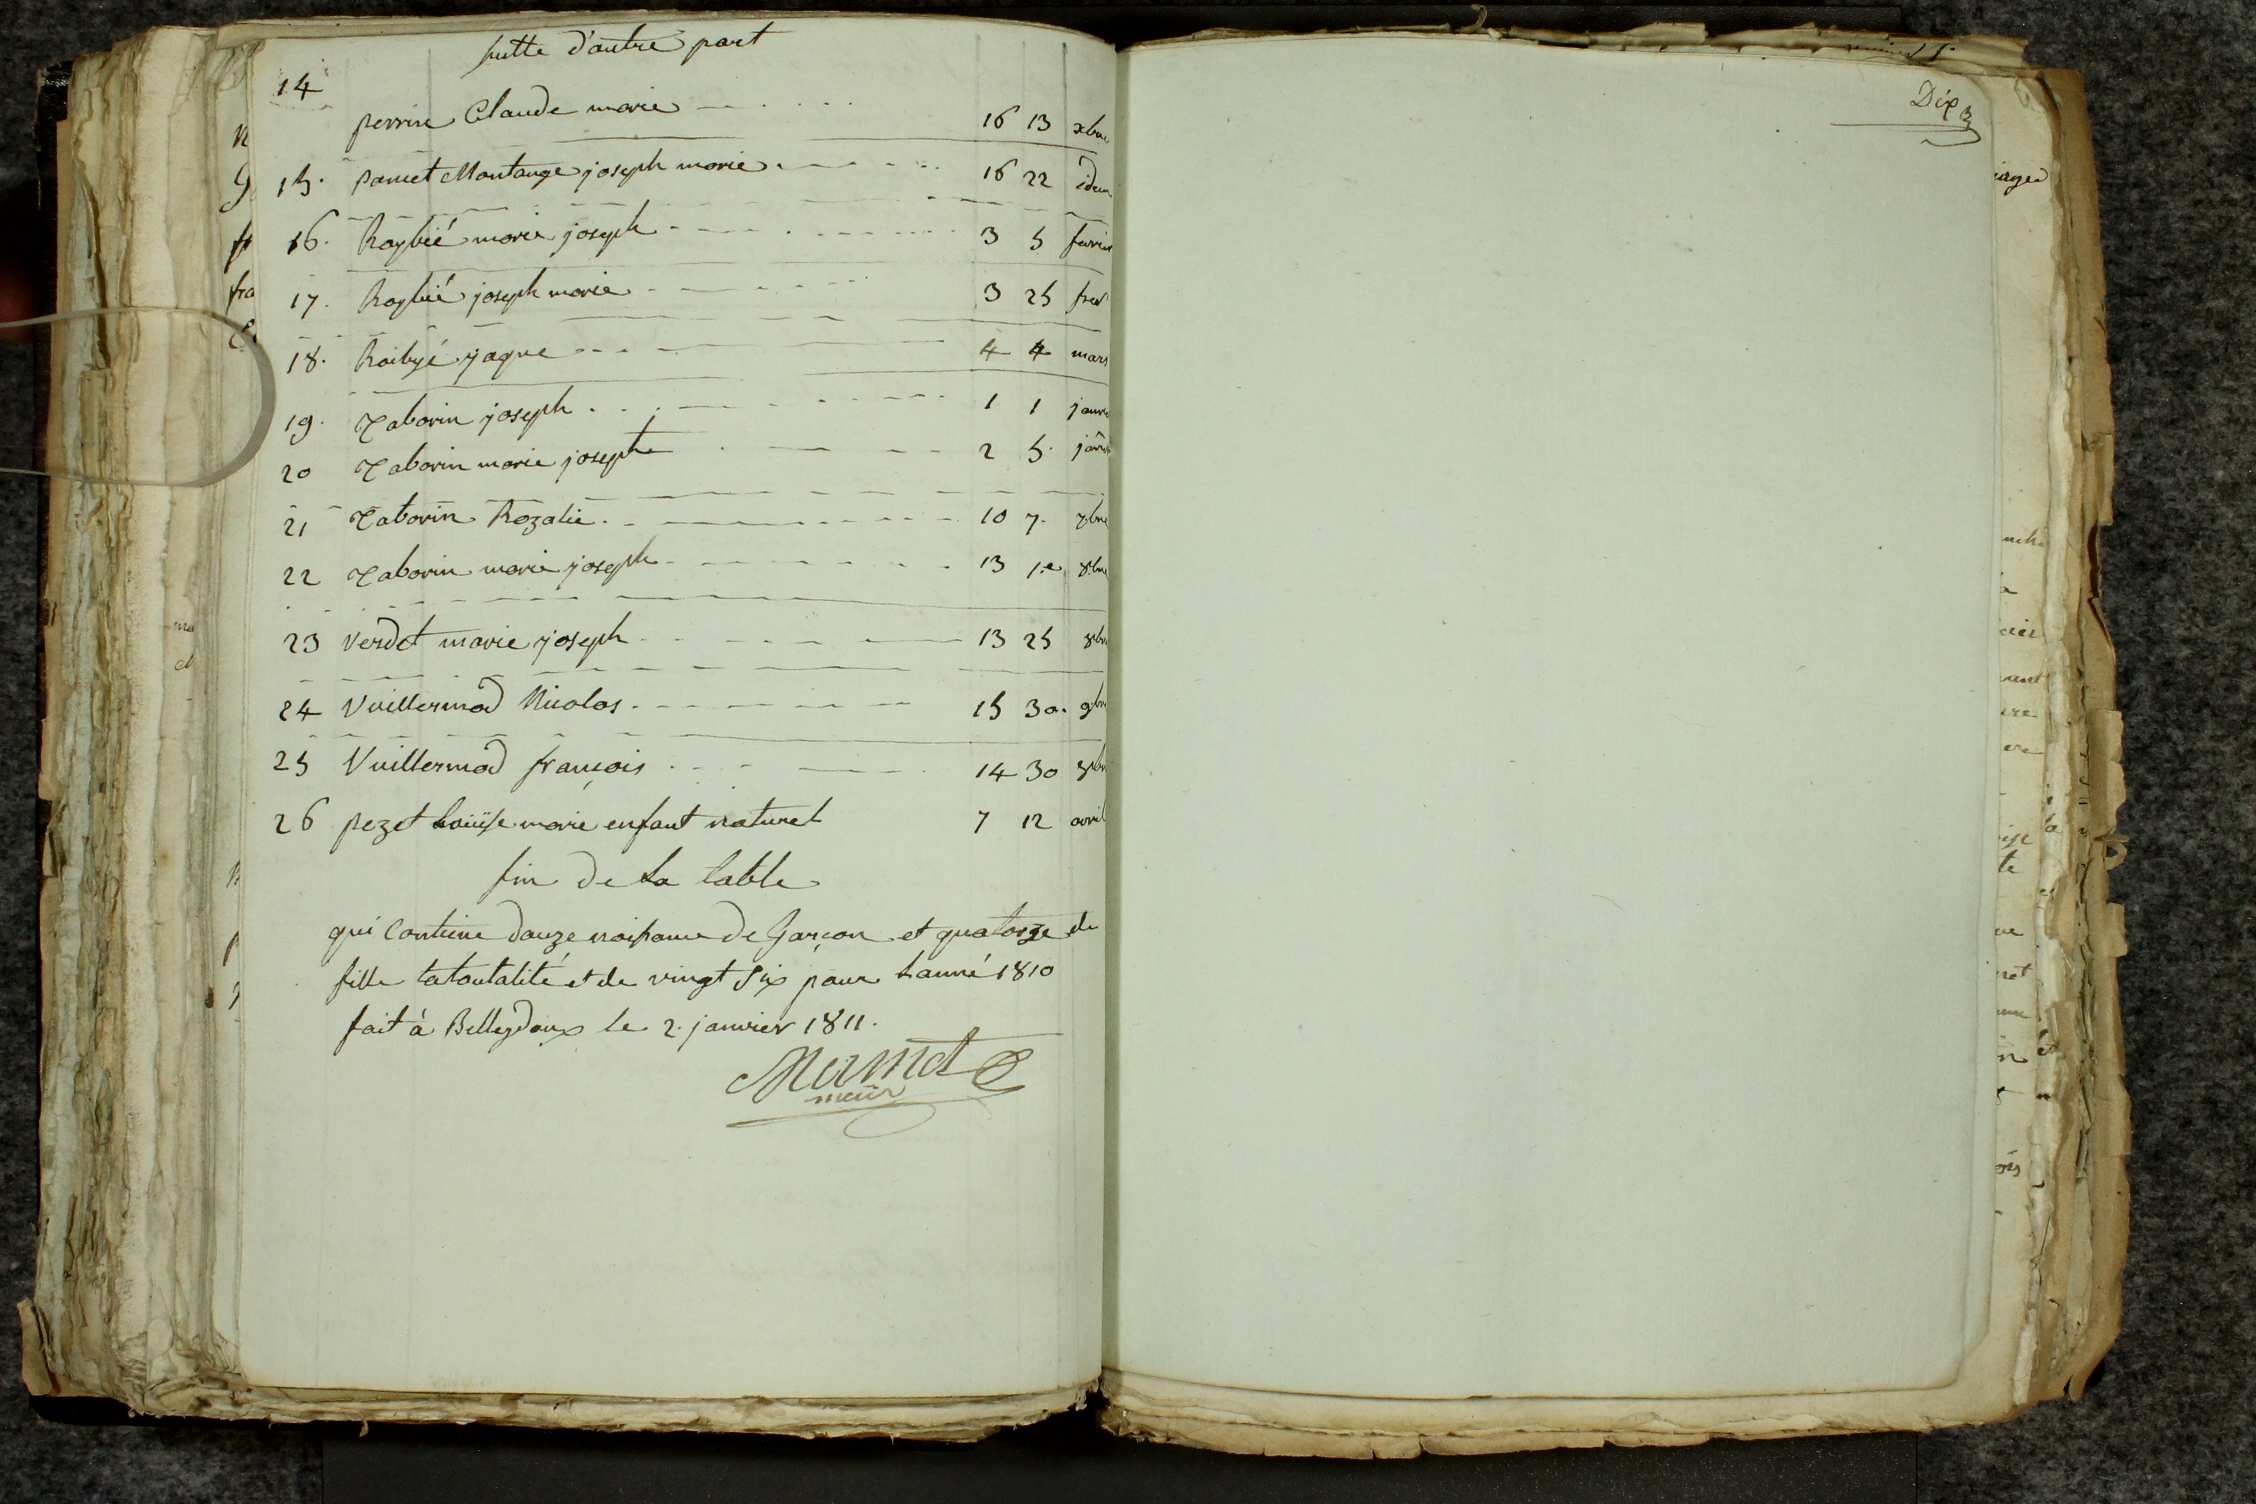 suitte d'autre part
14 perrin Claude marie 16 13 xbre
15. poncet Montange joseph marie 16 22 idem
16. Raybié marie joseph 3 5 fevrier
17. Raybié joseph marie 3 25 fevr
18. Raibyé jaque 4 4 mars
19. Taborin joseph 1 1 janvie
20 Taborin marie joseph 2 5. janvie
21 Taborin Rozalie 10 7. 7bre
22 Taborin marie joseph 13 1.e 8bre
23 Verdet marie joseph 13 25 8bre
24 Vuillermod Nicolas 15 30. 9bre
25 Vuillermod françois 14 30 8bre
26 pezet Louise marie enfant naturel 7 12 avril
fin de La table
qui Contiene douze naissance de Garçon et quatorze de
fille la toutalité et de vingt Six pour Lanné 1810
fait à Belleydoux le 2. janvier 1811.
Mermet
maire
Dix